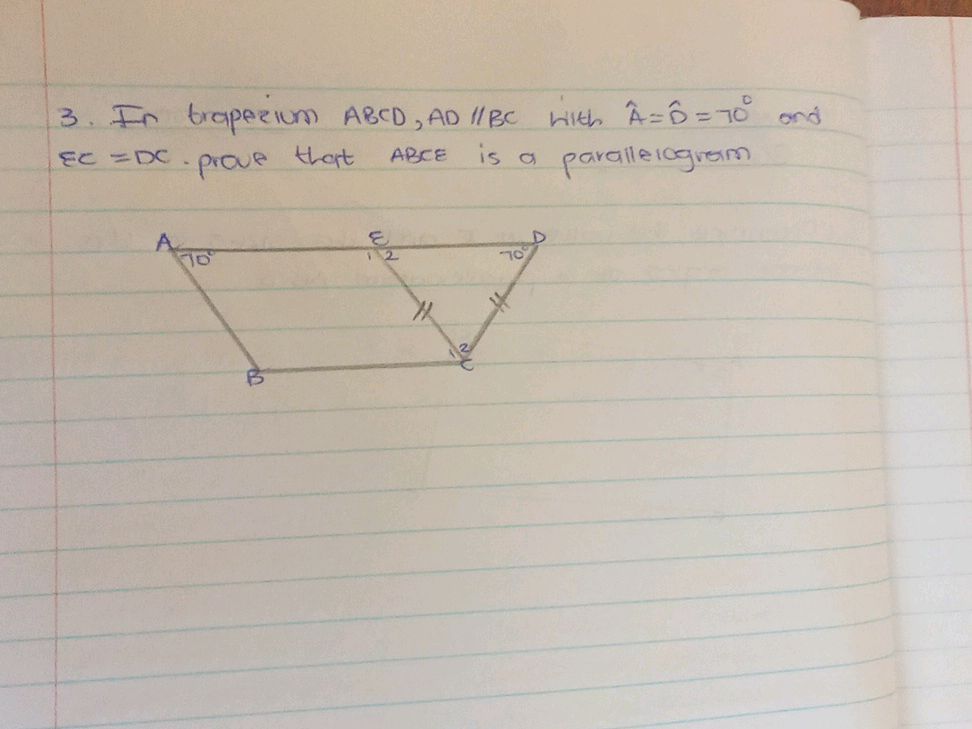 3. In trapezium ABCD, AD // BC with Â = D̂ = 70° and
EC = DC. prove that ABCE is a parallelogram
A E D
70° 1 2 70°
1 2
B C